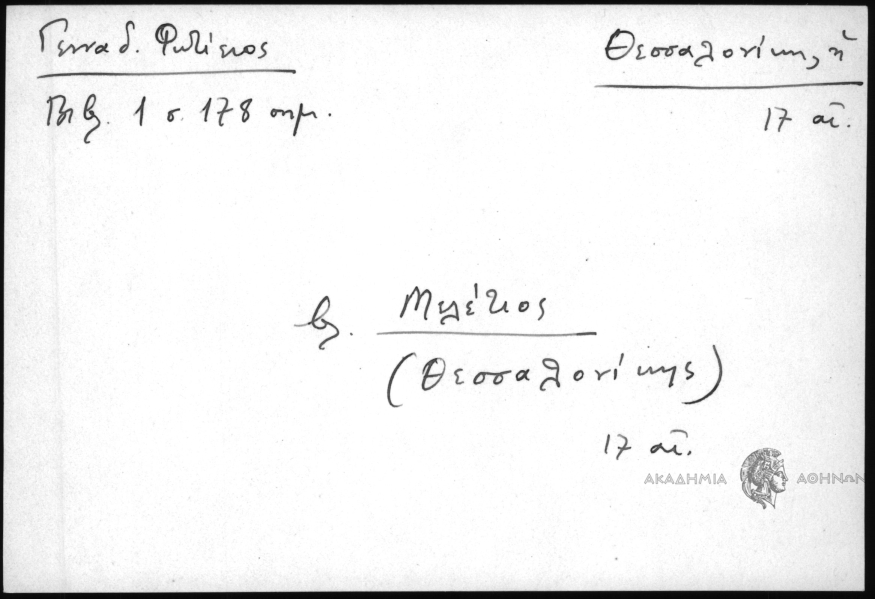 Γενναδ. Φωτίειος
Θεσσαλονίκης, ἡ
Βιβλ. 1 σ. 178 σημ.
17 αἰ.
βλ. Μελέτιος
(Θεσσαλονίκης)
17 αἰ.
ΑΚΑΔΗΜΙΑ ΑΘΗΝΩΝ